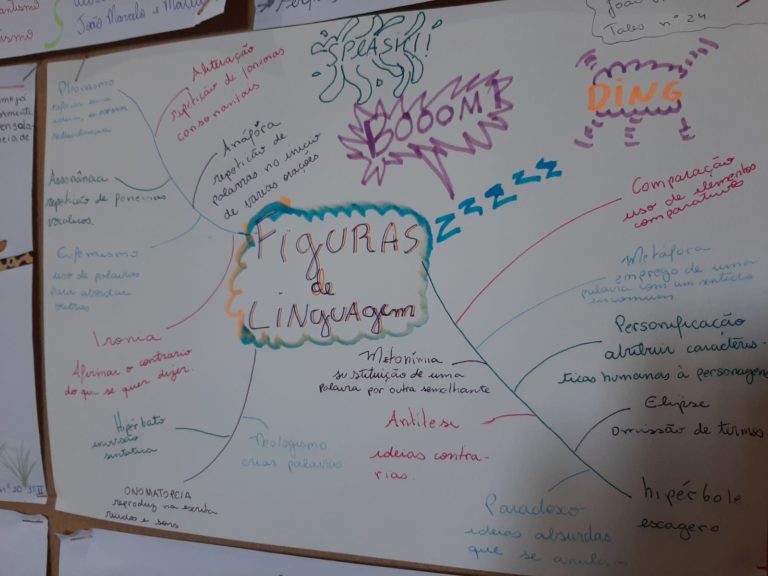 João Marcelo e
João
Tales nº 24
SPLÁSH!!
BOOOM!
DING
ZZZZZZ
FiGURAS
de
LiNGUAgem
Pleonasmo
Aliteração
repetição de fonemas
consonantais
Anáfora
repetição de
palavras no início
de varias orações
Assonância
repetição de fonemas
vocalicos.
Eufemismo
uso de palavras
para abordar
outras
Ironia
Afirmar o contrario
do que se quer dizer.
Hipérbato
inversão
sintática
ONOMATOPEIA
reproduz na escrita
ruidos e sons
Neologismo
criar palavras
Comparação
uso de elementos
comparativos
Metáfora
emprego de uma
palavra com um sentido
incomum
Personificação
atribuir caracteris-
ticas humanas à personagens
Metonímia
substituição de uma
palavra por outra semelhante
Elipse
omissão de termos
Antítese
ideias contra-
rias.
hipérbole
exagero
Paradoxo
ideias absurdas
que se anulam
nº 20 3ºII